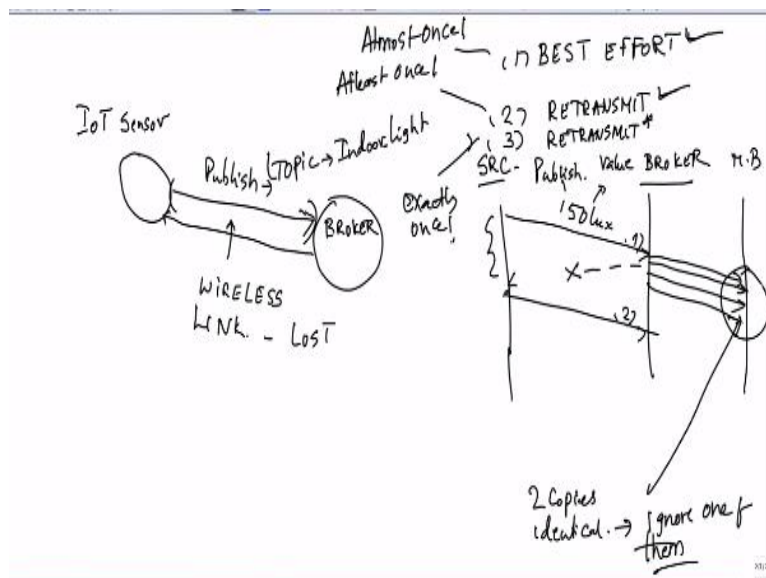 Atmost Once
Atleast Once
(1) BEST EFFORT
(2) RETRANSMIT
(3) RETRANSMIT*
Exactly
once
IoT Sensor
Publish → (TOPIC → Indoor light
BROKER
WIRELESS
LINK. - LOST
SRC- Publish. Value BROKER M.B
150 lux
(1)
X
(2)
2 Copies
identical. → Ignore one of
them